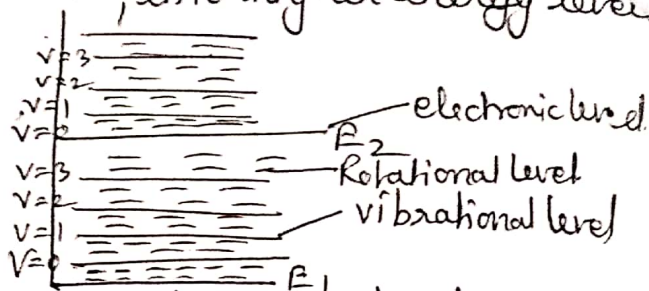 energy level
V=3
V=2
V=1
V=0
electronic level
E2
V=3
Rotational level
V=2
vibrational level
V=1
V=0
E1